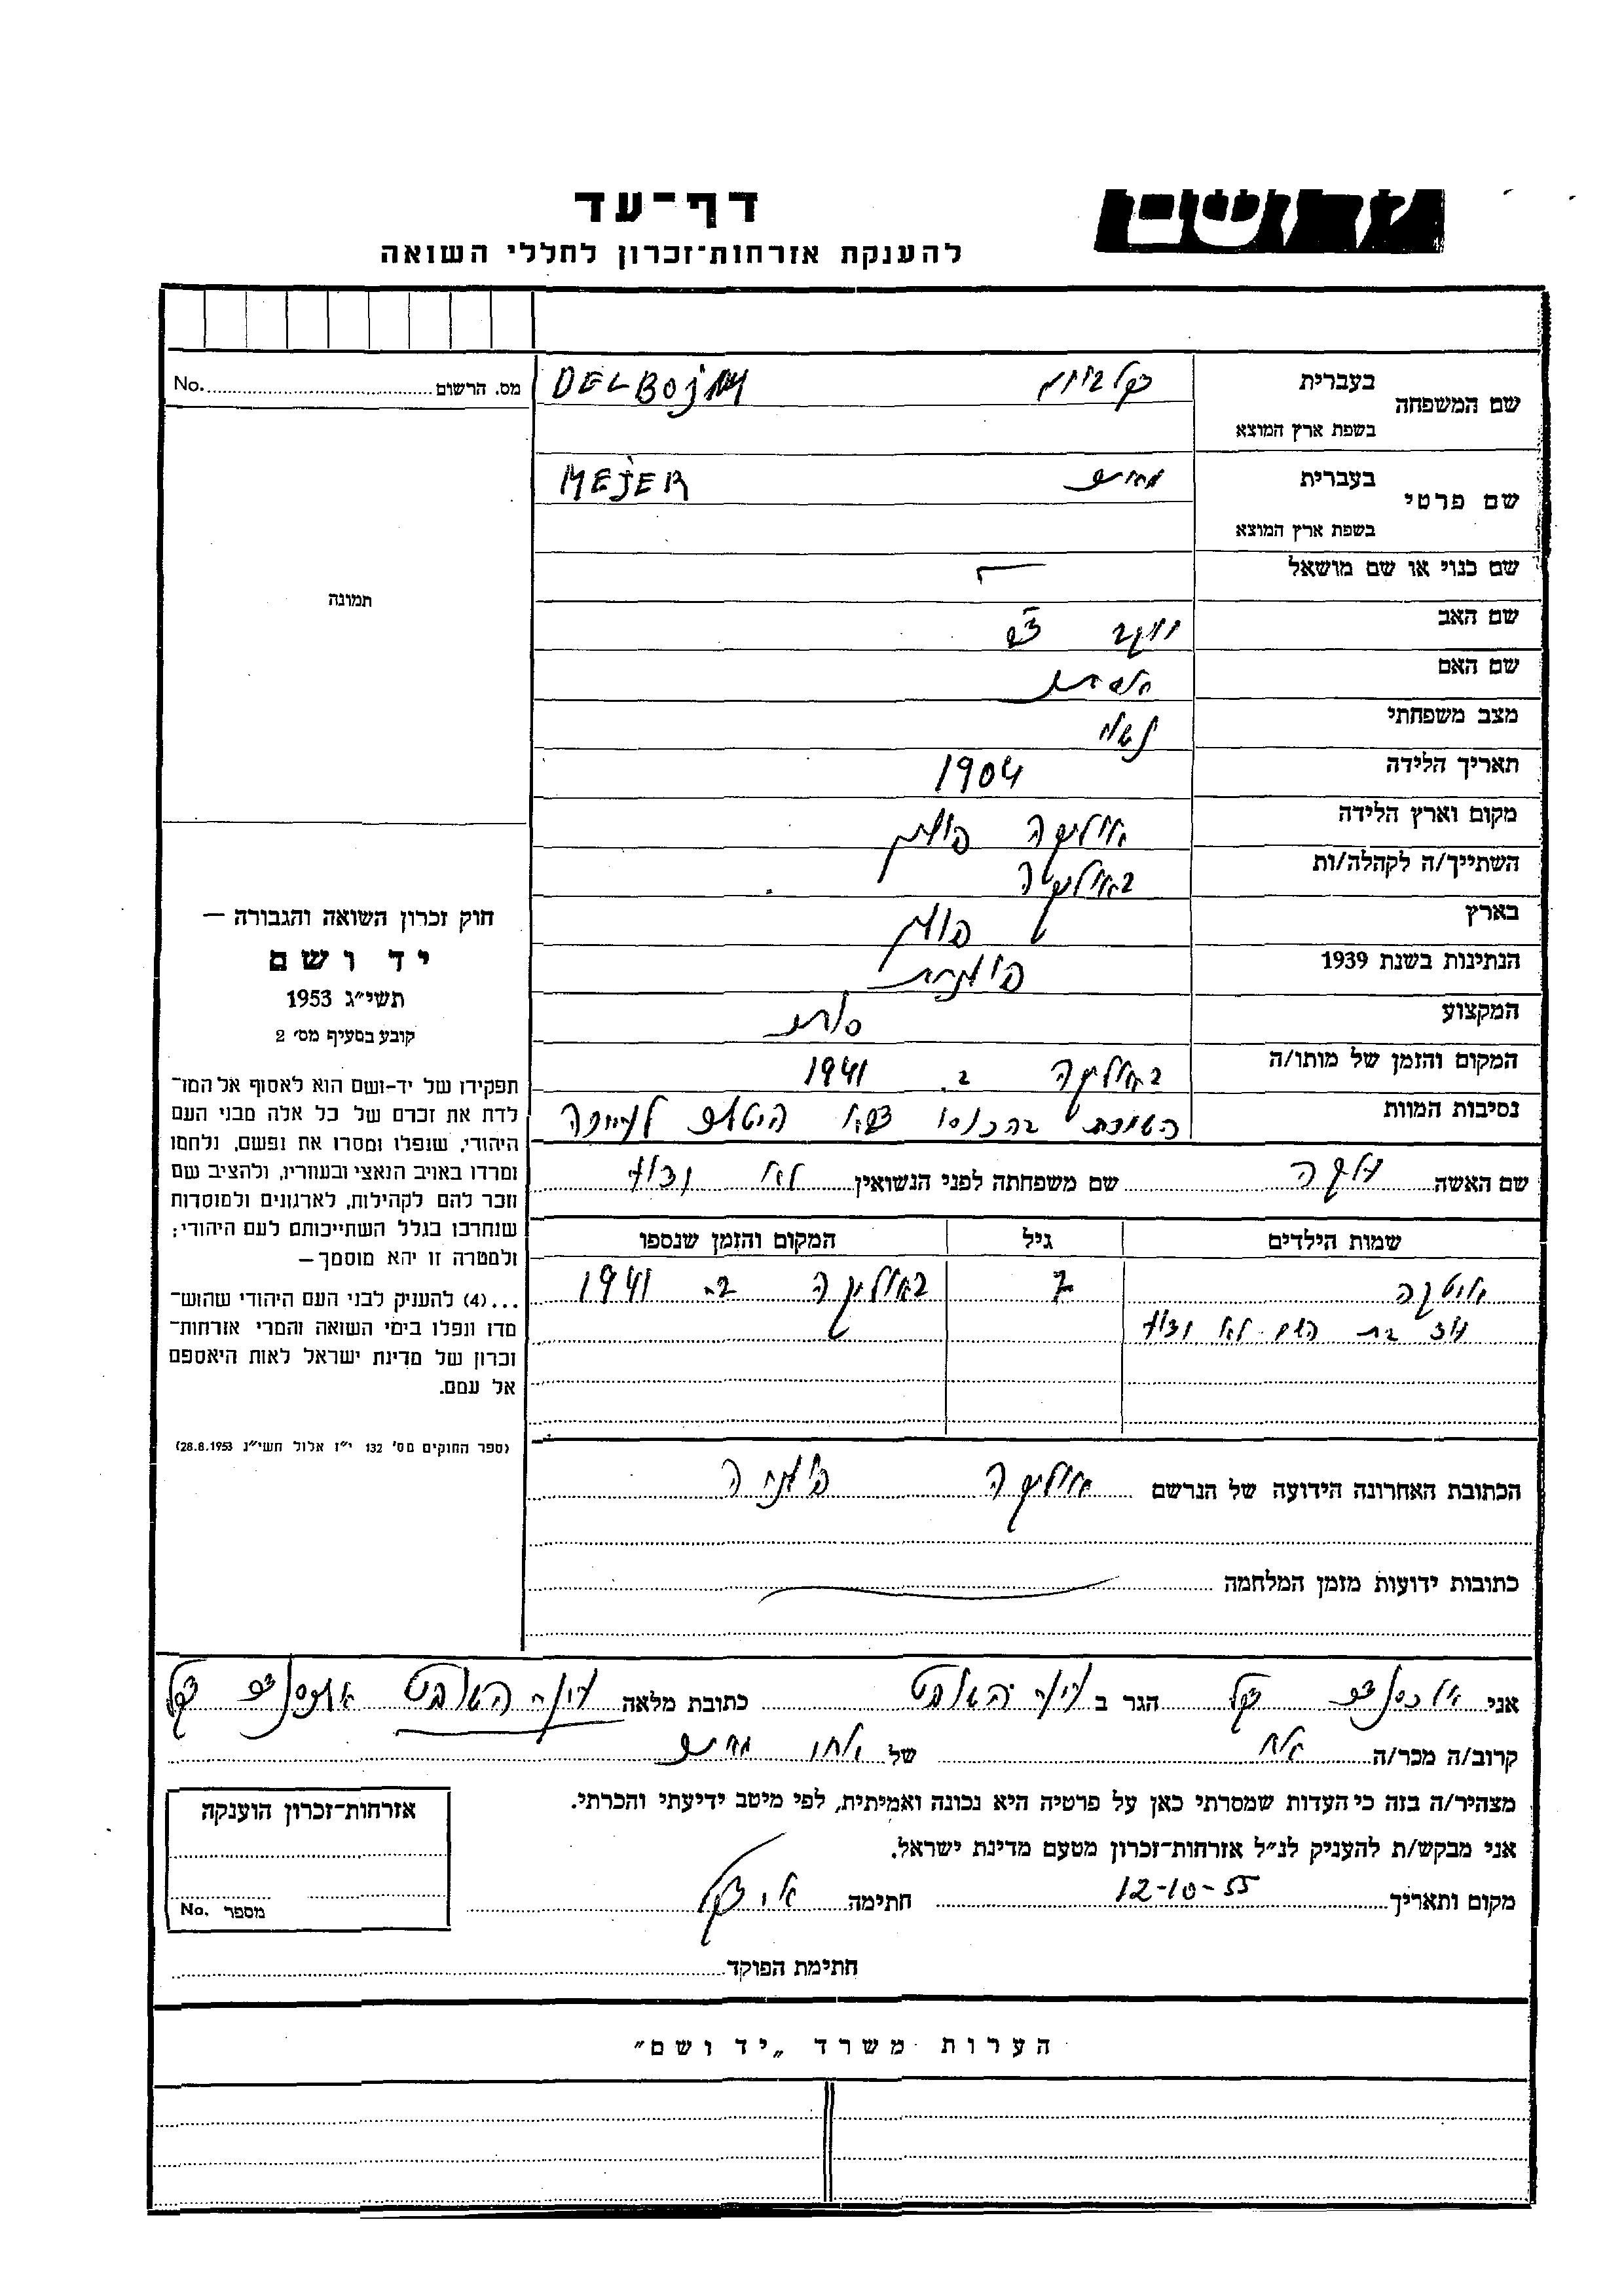 יד ושם
דף־עד
להענקת אזרחות־זכרון לחללי השואה
שם המשפחה בעברית דלבוים DELBOJM
בשפת ארץ המוצא
שם פרטי בעברית מאיר MEJER
בשפת ארץ המוצא
שם כנוי או שם מושאל —
שם האב יעקב
שם האם
מצב משפחתי נשוי
תאריך הלידה 1904
מקום וארץ הלידה פולין
השתייך/ה לקהלה/ות
בארץ פולין
הנתינות בשנת 1939 פולנית
המקצוע סוחר
המקום והזמן של מותו/ה ב. 1941
נסיבות המוות
שם האשה שם משפחתה לפני הנשואין לא ידוע
שמות הילדים גיל המקום והזמן שנספו
7 ב. 1941
עוד בת השם לא ידוע
הכתובת האחרונה הידועה של הנרשם
כתובות ידועות מזמן המלחמה
אני אלכסנדר הגר ב עין השופט כתובת מלאה עין השופט אלכסנדר
קרוב/ה מכר/ה אח של אחי מאיר
מצהיר/ה בזה כי העדות שמסרתי כאן על פרטיה היא נכונה ואמיתית, לפי מיטב ידיעתי והכרתי.
אני מבקש/ת להעניק לנ״ל אזרחות־זכרון מטעם מדינת ישראל.
מקום ותאריך 12-10-55 חתימה
חתימת הפוקד
מס. הרשום No.
תמונה
חוק זכרון השואה והגבורה —
יד ושם
תשי״ג 1953
קובע בסעיף מס׳ 2
תפקידו של יד-ושם הוא לאסוף אל המו־
לדת את זכרם של כל אלה מבני העם
היהודי, שנפלו ומסרו את נפשם, נלחמו
ומרדו באויב הנאצי ובעוזריו, ולהציב שם
וזכר להם לקהילות, לארגונים ולמוסדות
שנחרבו בגלל השתייכותם לעם היהודי;
ולמטרה זו יהא מוסמך —
...(4) להעניק לבני העם היהודי שהוש־
מדו ונפלו בימי השואה והמרי אזרחות־
זכרון של מדינת ישראל לאות היאספם
אל עמם.
(ספר החוקים מס׳ 132 י״ז אלול תשי״ג 28.8.1953)
אזרחות־זכרון הוענקה
מספר No.
הערות משרד „יד ושם״